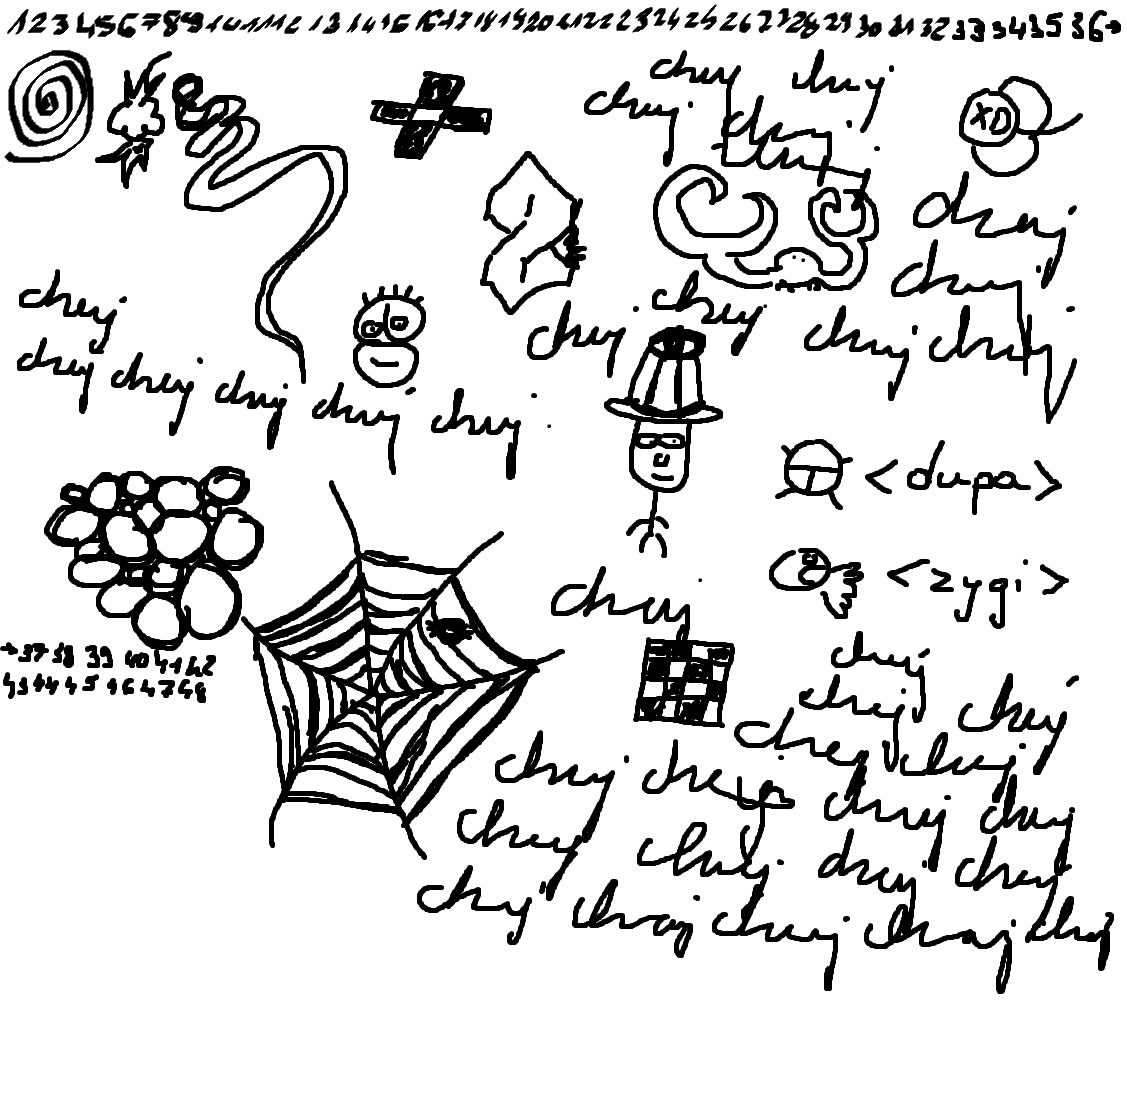 1 2 3 4 5 6 7 8 9 10 11 12 13 14 15 16 17 18 19 20 21 22 23 24 25 26 27 28 29 30 31 32 33 34 35 36→
chuj chuj
chuj chuj
chuj
XD
chuj
chuj
chuj
chuj chuj chuj chuj
chuj chuj chuj chuj chuj
<dupa>
<zygi>
chuj
→37 38 39 40 41 42
43 44 45 46 47 48
chuj
chuj chuj
chuj chuj
chuj chuj chuj chuj
chuj chuj chuj chuj
chuj chuj chuj chuj chuj